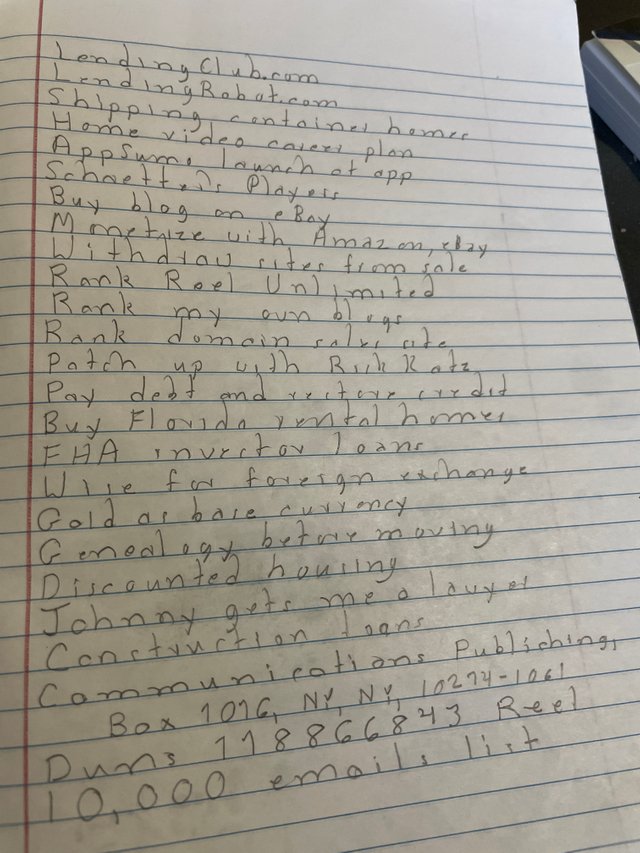 LendingClub.com
LendingRobot.com
Shipping container homes
Home video career plan
AppSumo launch of app
Players
Buy blog on eBay
Monetize with Amazon, ebay
Withdraw sites from sale
Rank Reel Unlimited
Rank my own blogs
Rank domain sales site
Patch up with Rick Katz
Pay debt and restore credit
Buy Florida rental homes
FHA investor loans
Wise for foreign exchange
Gold as base currency
Genealogy before moving
Discounted housing
Johnny gets me a lawyer
Construction loans
Communications Publishing,
Box 1016, NY, NY, 10274-1061
Duns 118866843 Reel
10,000 emails list